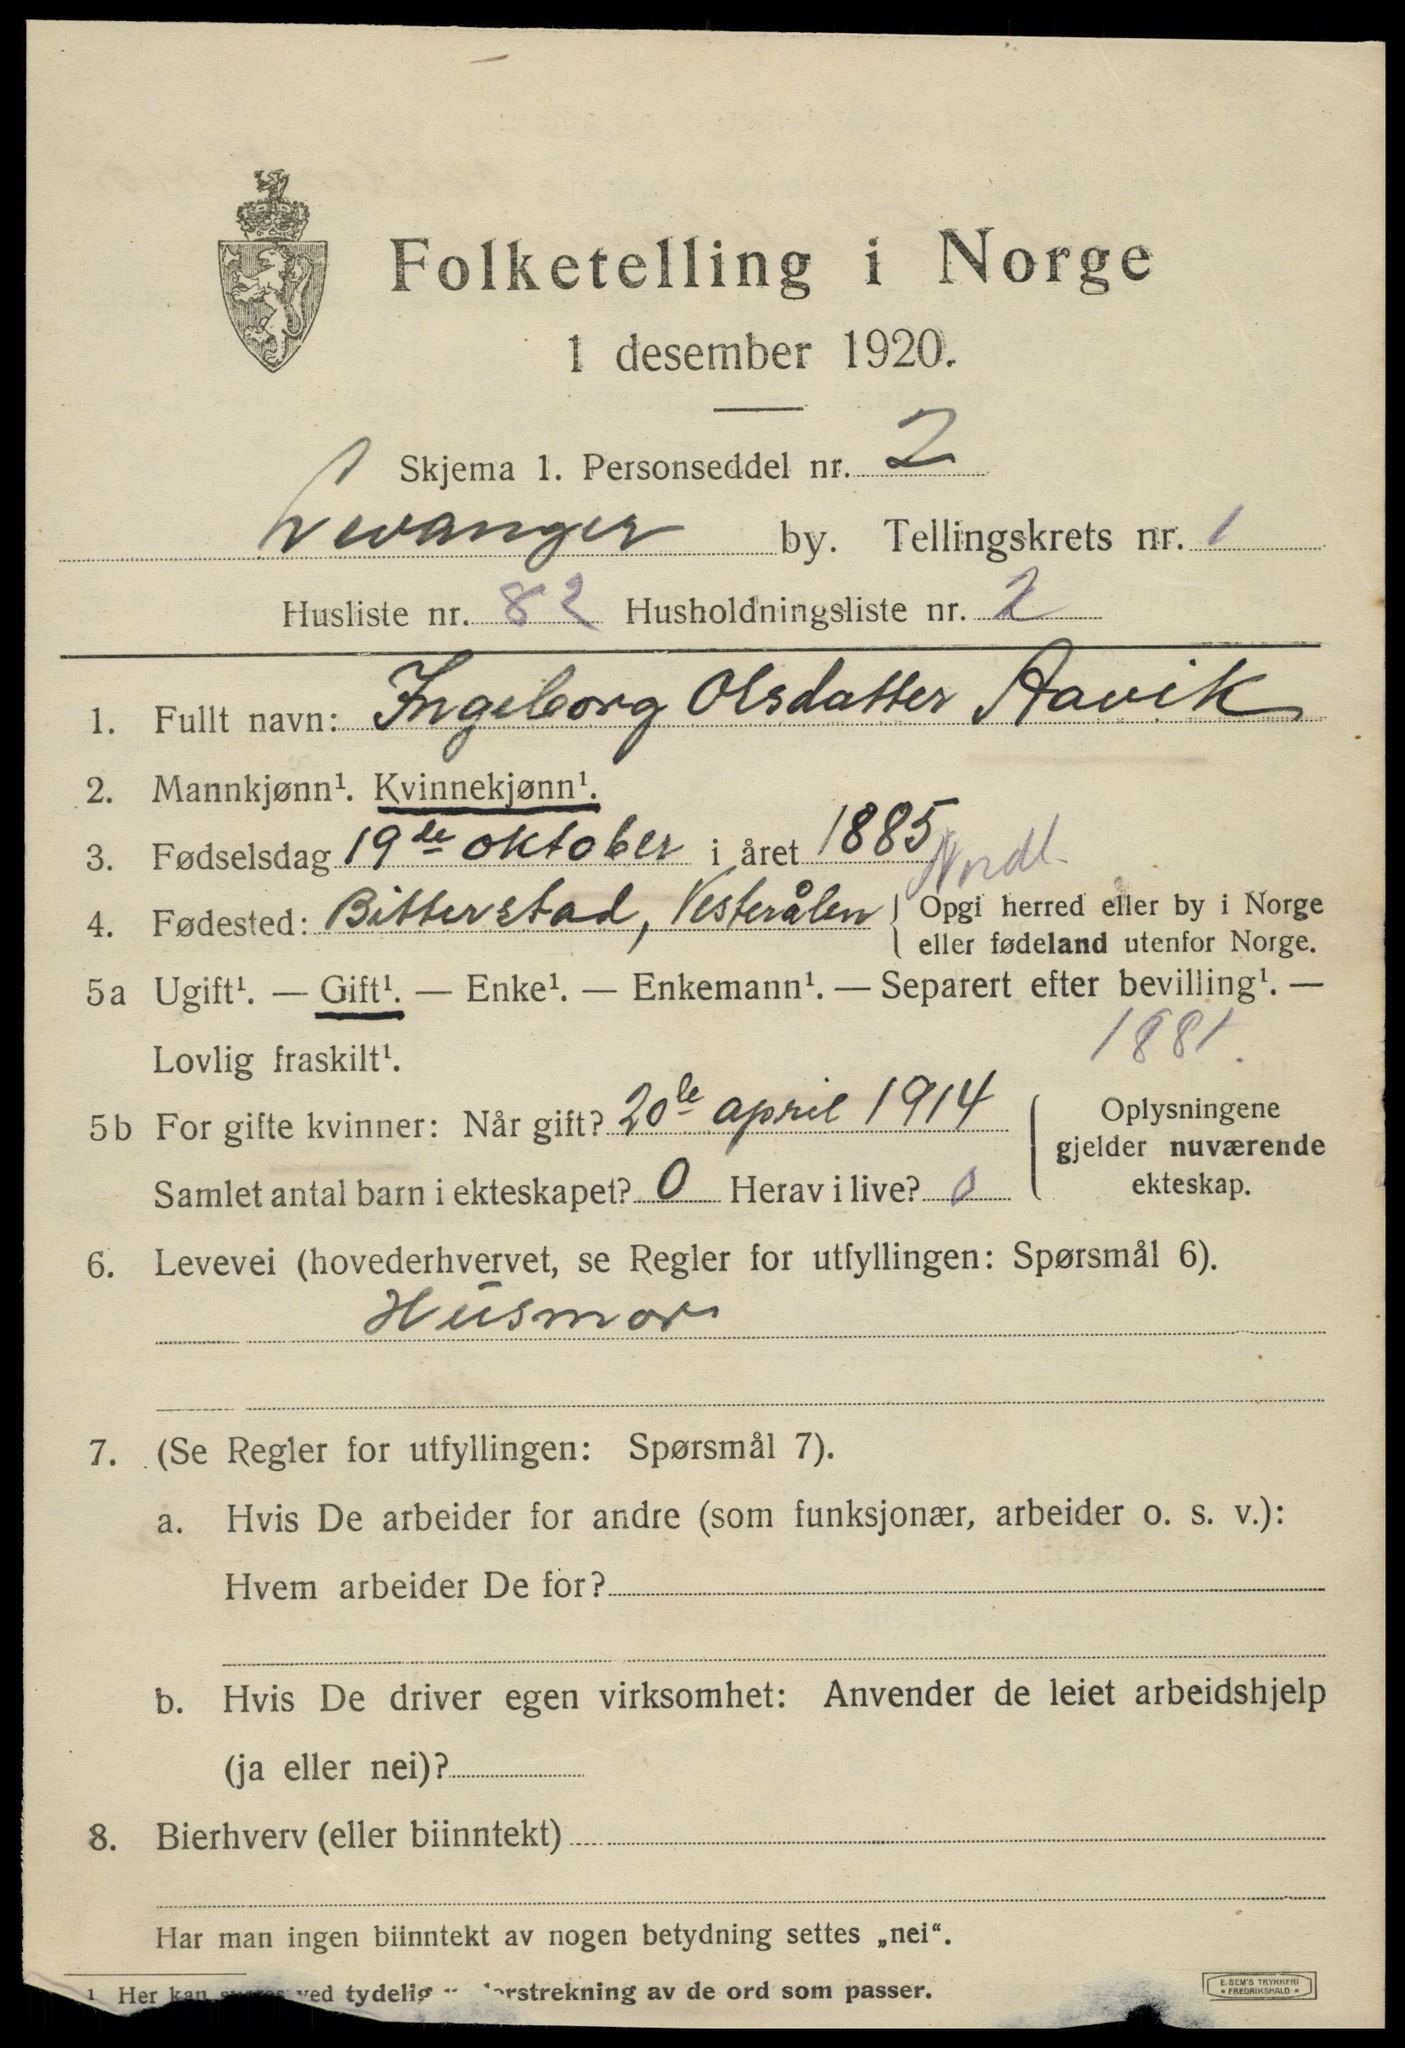 Folketelling i Norge
1 desember 1920.
Skjema 1. Personseddel nr. 2
Levanger by. Tellingskrets nr. 1
Husliste nr. 82 Husholdningsliste nr. 2
1. Fullt navn: Ingeborg Olsdatter Aavik
2. Mannkjønn¹. Kvinnekjønn¹.
3. Fødselsdag 19de oktober i året 1885
Nordl.
4. Fødested: Bitterstad, Vesterålen { Opgi herred eller by i Norge
eller fødeland utenfor Norge.
5a Ugift¹. — Gift¹. — Enke¹. — Enkemann¹. — Separert efter bevilling¹. —
Lovlig fraskilt¹.
1881.
5b For gifte kvinner: Når gift? 20de april 1914
Samlet antal barn i ekteskapet? 0 Herav i live? 0
Oplysningene
gjelder nuværende
ekteskap.
6. Levevei (hovederhvervet, se Regler for utfyllingen: Spørsmål 6).
Husmor
7. (Se Regler for utfyllingen: Spørsmål 7).
a. Hvis De arbeider for andre (som funksjonær, arbeider o. s. v.):
Hvem arbeider De for?
b. Hvis De driver egen virksomhet: Anvender de leiet arbeidshjelp
(ja eller nei)?
8. Bierhverv (eller biinntekt)
Har man ingen biinntekt av nogen betydning settes „nei“.
¹ Her kan ved tydelig understrekning av de ord som passer.
E. SEM'S TRYKKERI
FREDRIKSHALD